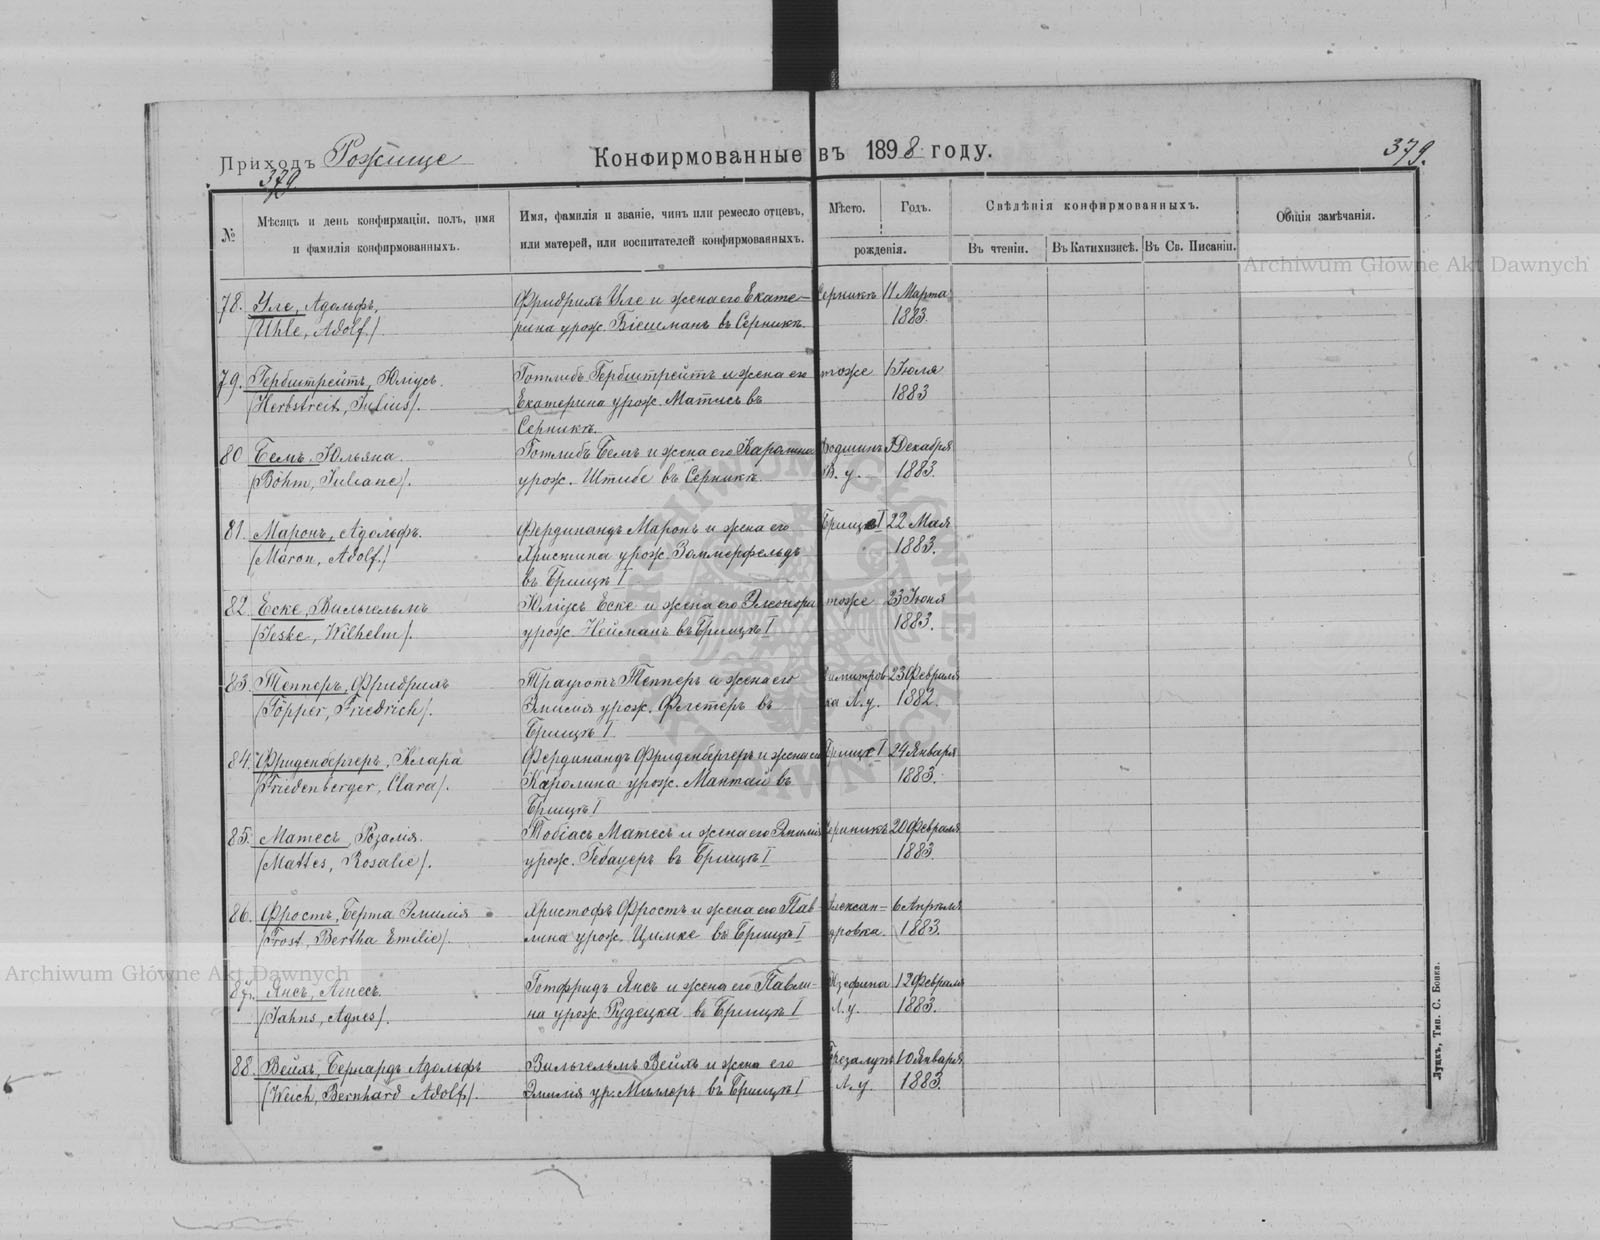 Приходъ Рожище
Конфирмованные въ 1898 году.
379.
379
№
Мѣсяцъ и день конфирмаціи, полъ, имя
и фамилія конфирмованныхъ.
Имя, фамилія и званіе, чинъ или ремесло отцевъ,
или матерей, или воспитателей конфирмованныхъ.
Мѣсто.
Годъ.
рожденія.
Свѣдѣнія конфирмованныхъ.
Въ чтеніи.
Въ Катихизисѣ.
Въ Св. Писаніи.
Общія замѣчанія.
78. Уле, Адольфъ,
(Uhle, Adolf.)
Фридрихъ Уле и жена его Екате-
рина урож. Бісшманъ въ Серникѣ.
Серникѣ 11 Марта
1883.
79. Гербштрейтъ, Юліусъ.
(Herbstreit, Julius).
Готлибъ Гербштрейтъ и жена его
Екатерина урож. Матисъ въ
Серникѣ.
тоже 1 Іюля
1883
80 Бемъ, Юльяна.
(Böhm, Juliane).
Готлибъ Бемъ и жена его Каролина
урож. Штибе въ Серникѣ.
Декабря
В. у. 1883.
81. Маронъ, Адольфъ.
(Maron, Adolf.)
Фердинандъ Маронъ и жена его
Христина урож. Зоммерфельдъ
въ Брищѣ I
Брище I 22 Мая
1883.
82. Еске, Вильгельмъ
(Jeske, Wilhelm).
Юліусъ Еске и жена его Элеонора
урож. Нейманъ въ Брищѣ I
тоже 23 Іюня
1883.
83. Тепперъ, Фридрихъ
(Töpper, Friedrich).
Трауготъ Тепперъ и жена его
Эмилія урож. Флетеръ въ
Брищѣ I.
Димитров 23 Февраля
ка Л. у. 1882.
84. Фриденбергеръ, Клара
(Friedenberger, Clara).
Фердинандъ Фриденбергеръ и жена его
Каролина урож. Мантай въ
Брищѣ I
Брище I 24 Января
1883.
85. Матесъ, Розалія.
(Mattes, Rosalie).
Тобіасъ Матесъ и жена его Эмилія
урож. Гебауеръ въ Брищѣ I
Серникѣ 20 Февраля
1883.
86. Фростъ, Берта Эмилія
(Frost, Bertha Emilie).
Христофъ Фростъ и жена его Пав-
лина урож. Цимке въ Брищѣ I
Алексан- 6 Апрѣля
дровка. 1883.
87. Янсъ, Агнесъ.
(Jahns, Agnes).
Готфридъ Янсъ и жена его Павли-
на урож. Рудецка въ Брищѣ I
Юзефина 12 Февраля
Л. у. 1883.
88. Вейхъ, Бернардъ Адольфъ
(Weich, Bernhard Adolf).
Вильгельмъ Вейхъ и жена его
Эмилія ур. Миллеръ въ Брищѣ I
10 Января
Л. у. 1883.
Луцкъ, Тип. С. Бонка.
Archiwum Główne Akt Dawnych
Archiwum Główne Akt Dawnych